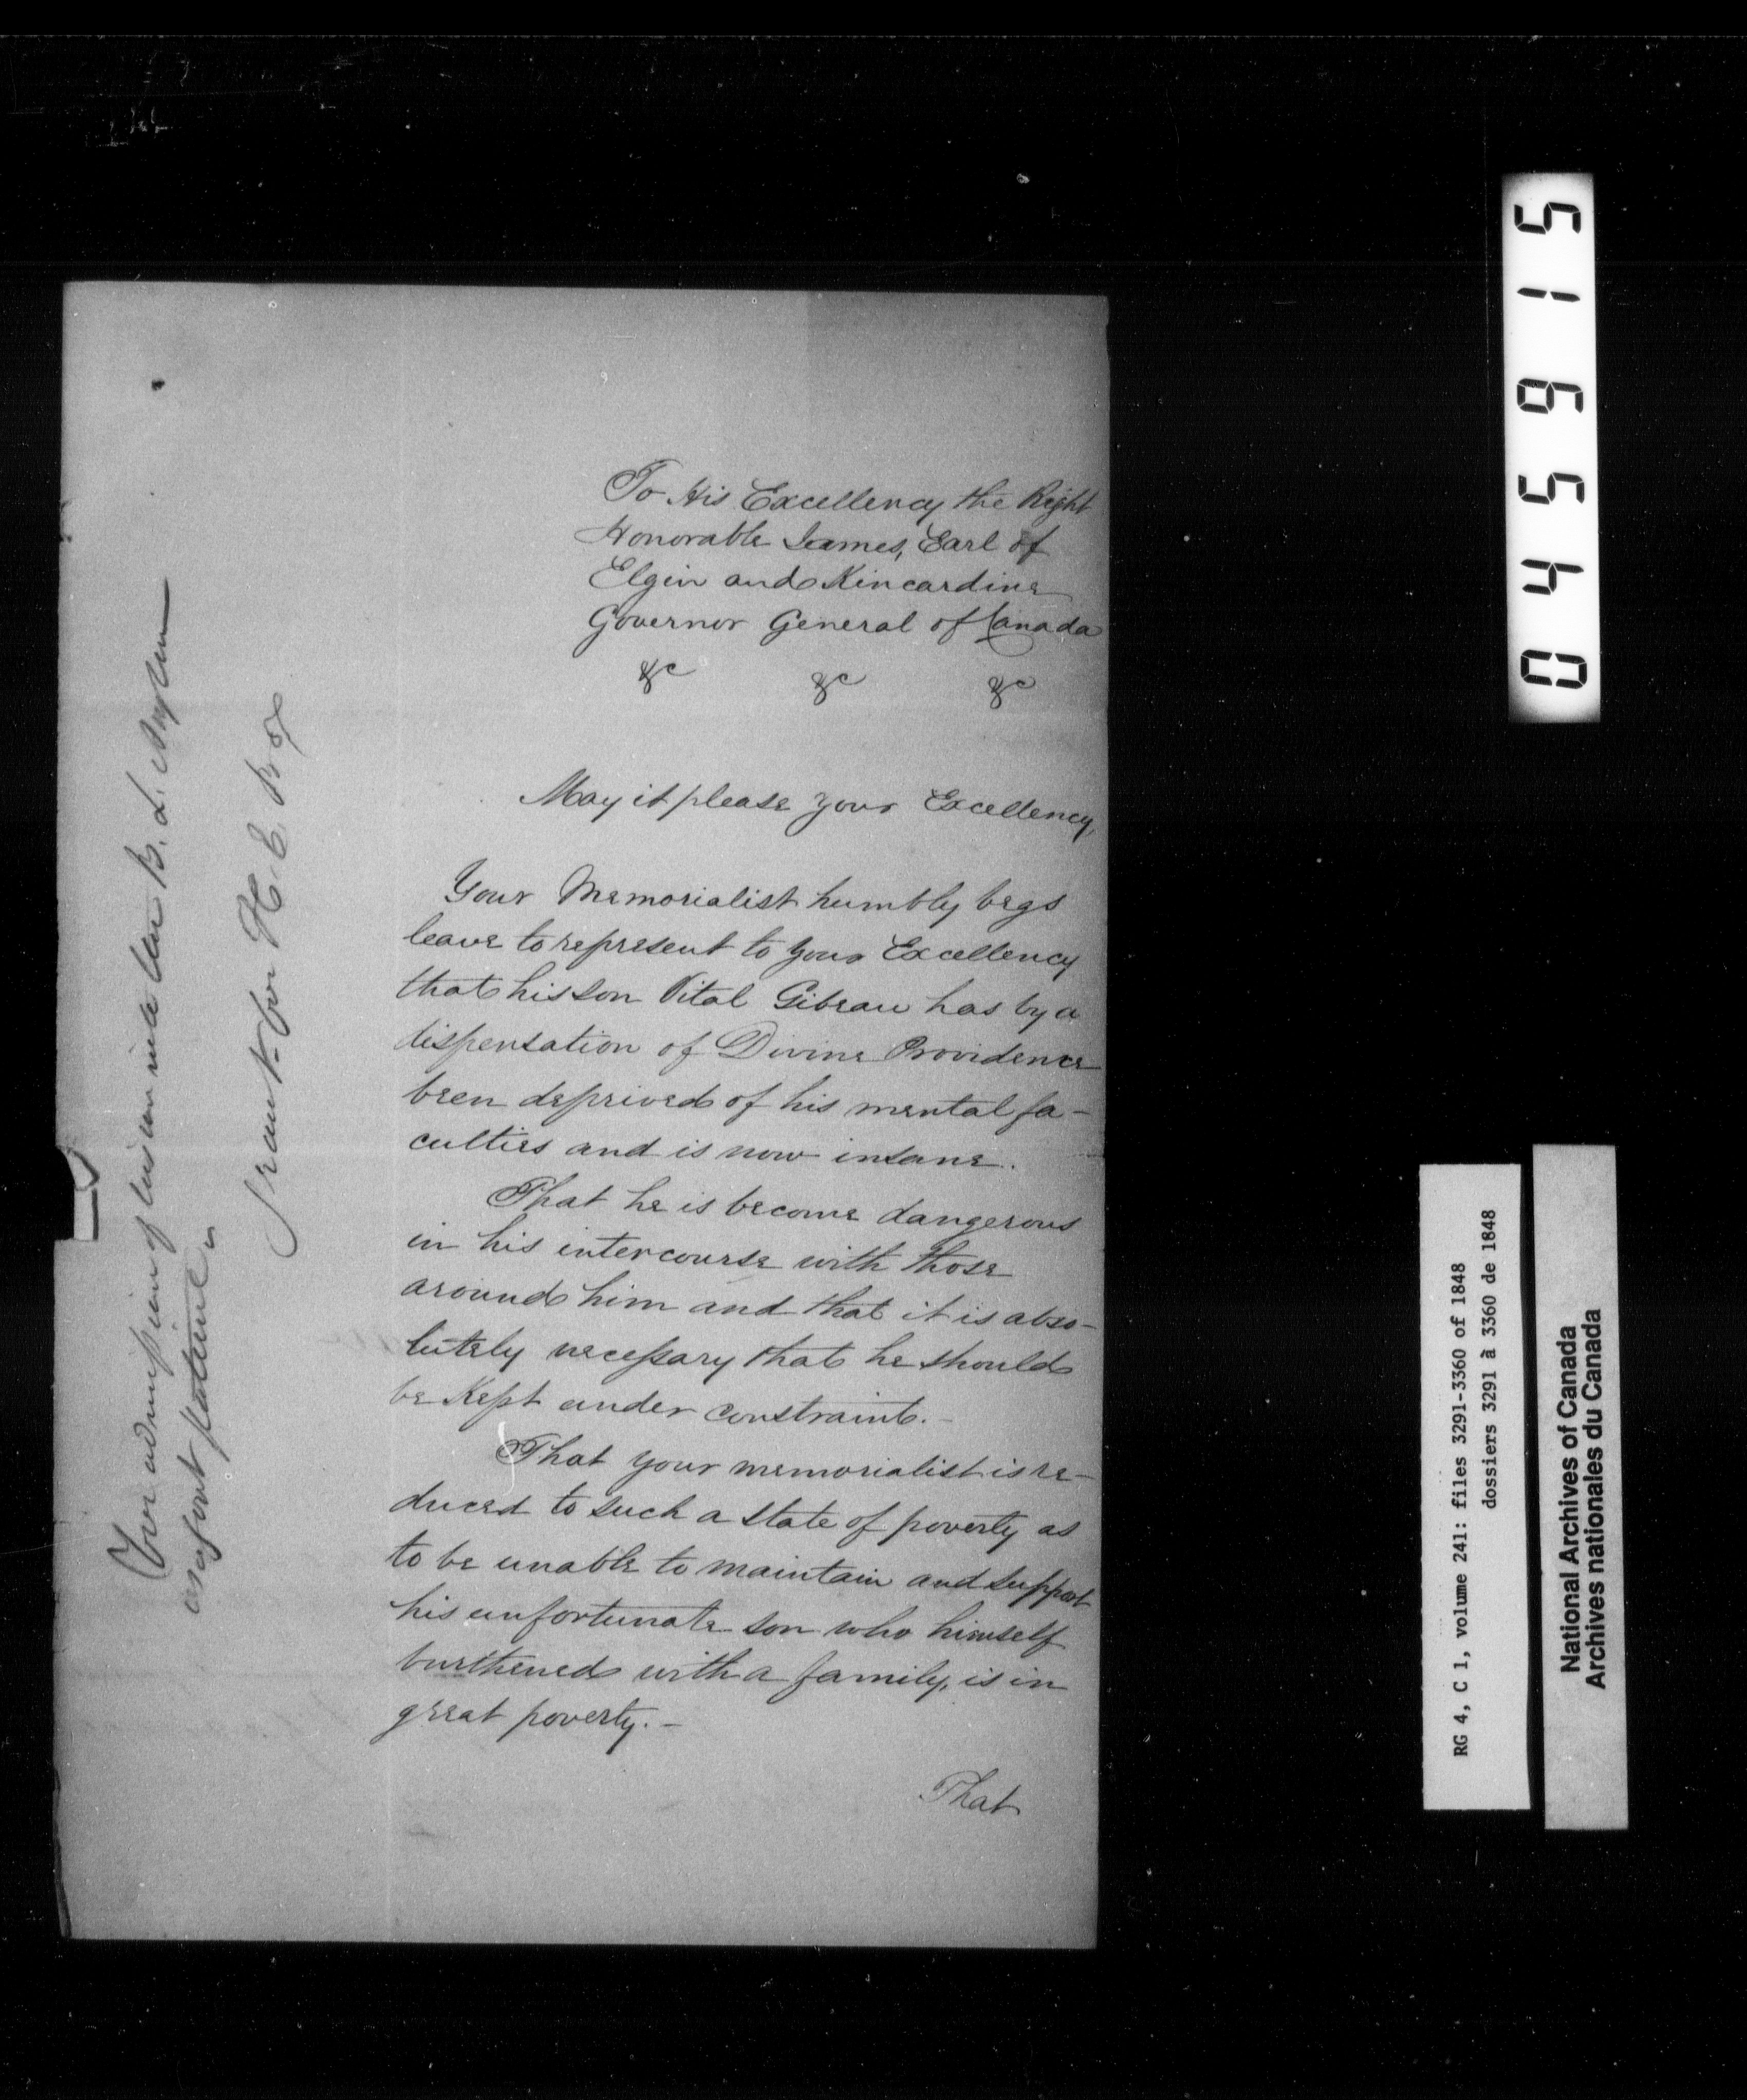 To His Excellency the Right
Honorable James, Earl of
Elgin and Kincardine
Governor General of Canada
&c &c &c
May it please your Excellency,
Your Memorialist humbly begs
leave to represent to your Excellency
that his son Vital Gibeau has by a
dispensation of Divine Providence
been deprived of his mental fa-
culties and is now insane.
That he is become dangerous
in his intercourse with those
around him and that it is abso-
lutely necessary that he should
be Kept under constraint. -
That your memorialist is re-
duced to such a state of poverty as
to be unable to maintain and support
his unfortunate son who himself
burthened with a family, is in
great poverty. -
That
For admission of his son into the B. L. Asylum
as a Govt patient
Grant for H. E.
045915
RG 4, C 1, volume 241: files 3291-3360 of 1848
dossiers 3291 à 3360 de 1848
National Archives of Canada
Archives nationales du Canada